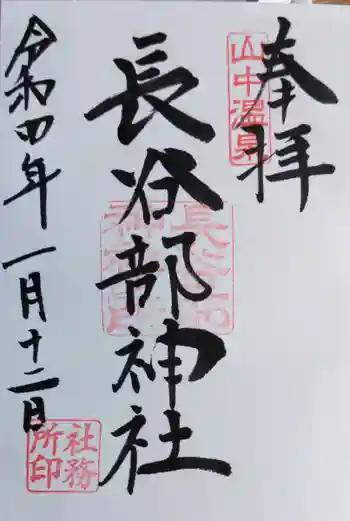 奉拝
山中温泉
長谷部神社
長谷部
神社印
令和四年一月十二日
社務
所印